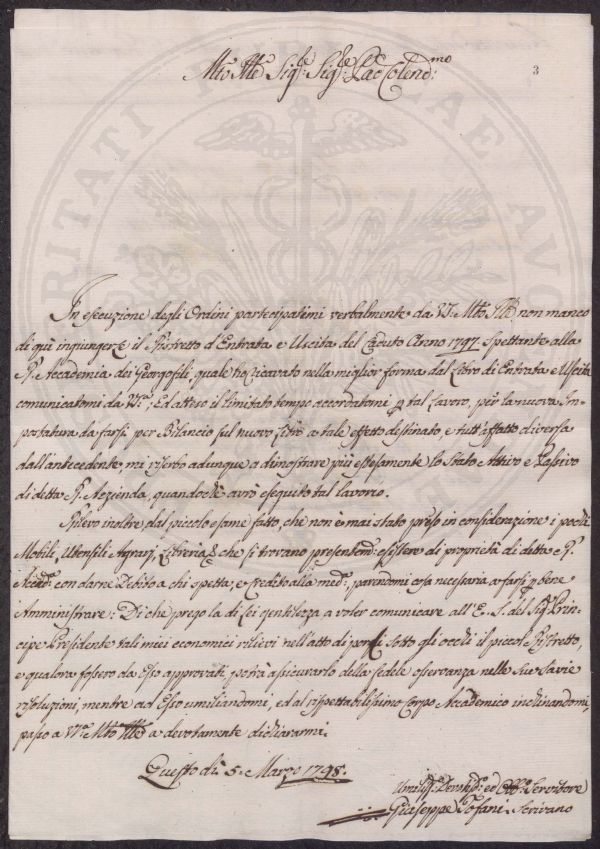 3
Mto Illre Sigre: Sigre: Pne Colendmo:
In esecuzione degli Ordini partecipatimi verbalmente da V.S. Mto Illre non manco
di quì ingiungerle il Ristretto d'Entrata e Uscita del Caduto Anno 1797. Spettante alla
R. Accademia dei Georgofili, quale ho ricavato nella miglior forma dal Libro di Entrata e Uscita
comunicatomi da V.S.; Ed atteso il limitato tempo accordatomi p tal Lavoro, per la nuova Im=
postatura da farsi per Bilancio sul nuovo Libro a tale effetto destinato, e tutt'affatto diversa
dall'antecedente, mi riserbo adunque a dimostrare più estesamente lo Stato Attivo e Passivo
di detta R. Azzienda, quando che avrò eseguito tal lavorio.
Rilevo inoltre, dal piccolo esame fatto, che non è mai stato preso in considerazione i pochi
Mobili, Utensili Agrarj, Libreria, che si trovano presentemte: esistere di proprietà di detta R.
Accada: con darne Debito a chi spetta; e Credito alla meda: parendomi cosa necessaria a farsi p bene
Amministrare: Di che prego la di lei gentilezza a voler comunicare all'E. S. del Sigr Prin=
cipe Presidente tali miei economici rilievi nell'atto di porli sotto gli occhi il piccol Ristretto,
e qualora fossero da Esso approvati, potrà assicurarlo della fedele osservanza nelle Sue Savie
risoluzioni, mentre ad Esso umiliandomi, ed al rispettabilissimo Corpo Accademico inchinandomi,
passo a V.S. Mto Illre a devotamente dichiararmi.
Questo dì 5. Marzo 1798.
Umiliss: Devmo: ed Obbmo: Servitore
Giuseppe Tofani Scrivano